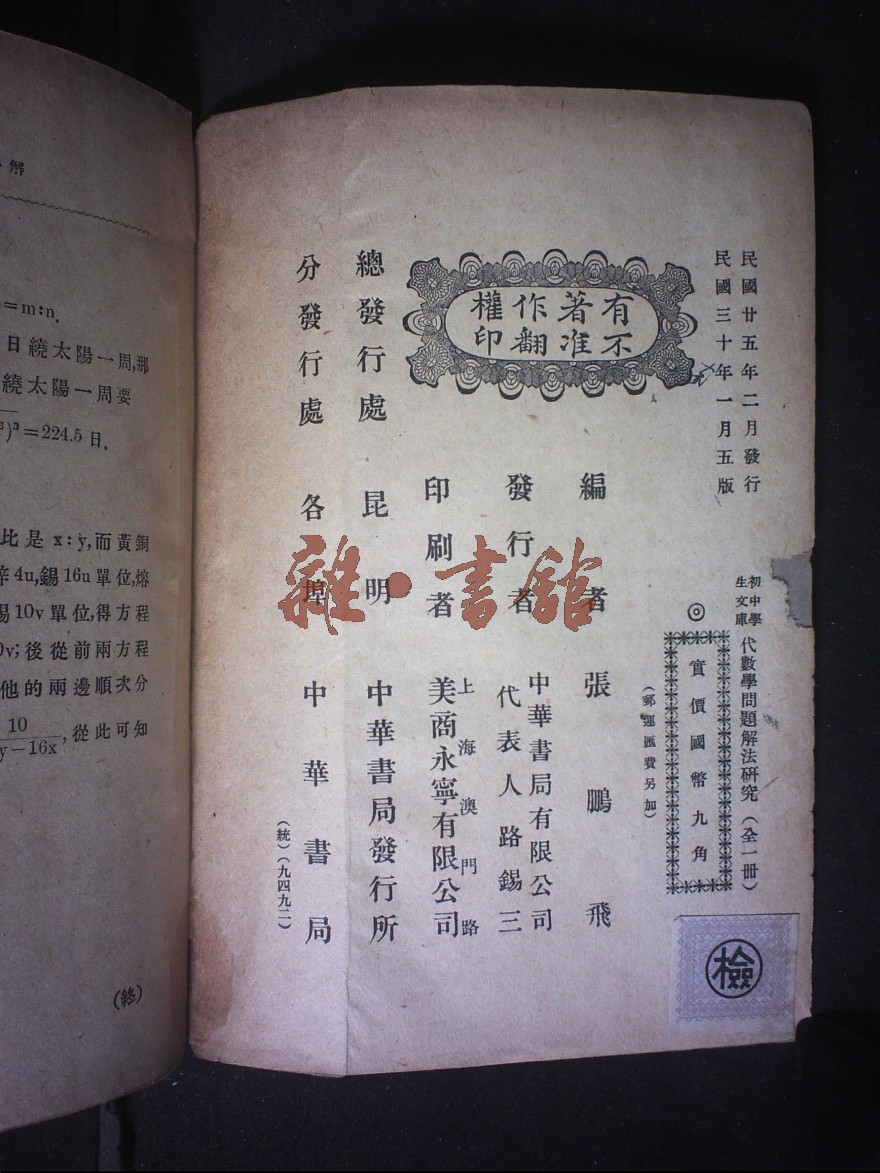 民國廿五年二月發行
民國三十年一月五版
有著作權
不准翻印
初中學生文庫
代數學問題解法研究（全一冊）
◎實價國幣九角
（郵運匯費另加）
編者 張鵬飛
發行者 中華書局有限公司
代表人路錫三
印刷者 上海澳門路
美商永寧有限公司
總發行處 昆明 中華書局發行所
分發行處 各埠 中華書局
（統）（九四九二）
檢
雜·書館
解
=m:n.
日繞太陽一周,那
繞太陽一周要
)³=224.5日.
比是 x:y,而黃銅
4u,錫16u單位,熔
錫10v單位,得方程
0v;後從前兩方程
他的兩邊順次分
10
y−16x
,從此可知
(終)